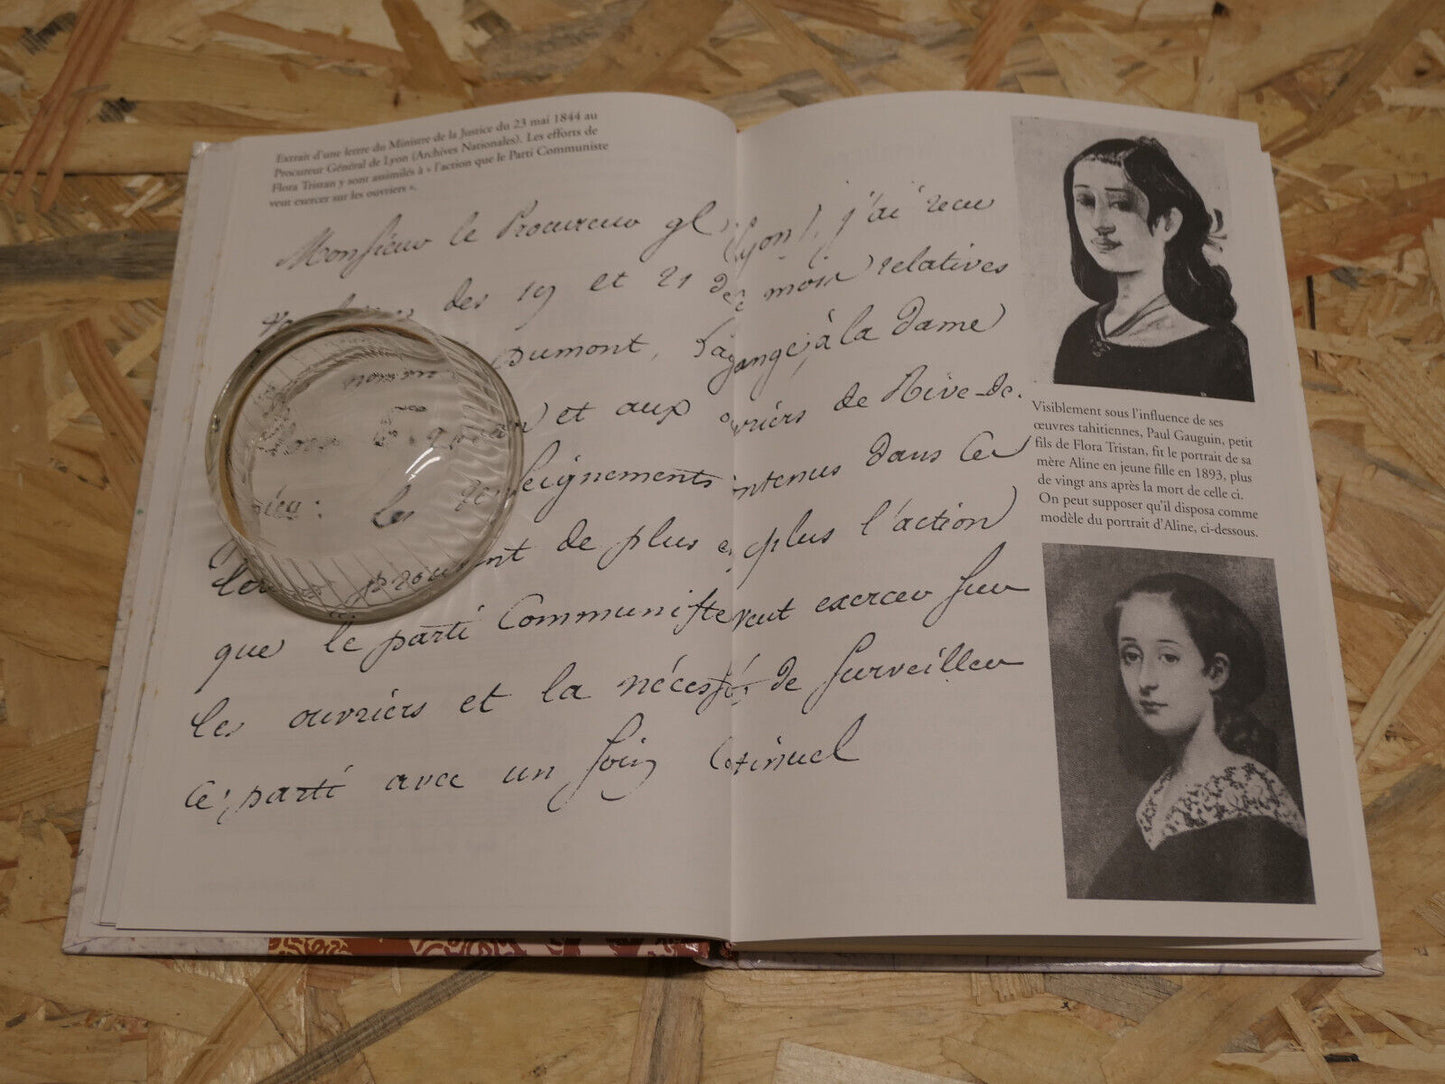 Extrait d'une lettre du Ministre de la Justice du 23 mai 1844 au
Procureur Général de Lyon (Archives Nationales). Les efforts de
Flora Tristan y sont assimilés à « l'action que le Parti Communiste
veut exercer sur les ouvriers ».
Monsieur le Procureur gl (Lyon), j'ai recu
des 19 et 21 de ce mois relatives
Dumont, Lagange, à la Dame
et aux ouvriers de Rive-de-
: les renseignements contenus dans ces
prouvent de plus en plus l'action
que le parti Communiste veut exercer sur
les ouvriers et la nécessité de surveiller
ce parti avec un soin continuel
Visiblement sous l'influence de ses
œuvres tahitiennes, Paul Gauguin, petit
fils de Flora Tristan, fit le portrait de sa
mère Aline en jeune fille en 1893, plus
de vingt ans après la mort de celle ci.
On peut supposer qu'il disposa comme
modèle du portrait d'Aline, ci-dessous.